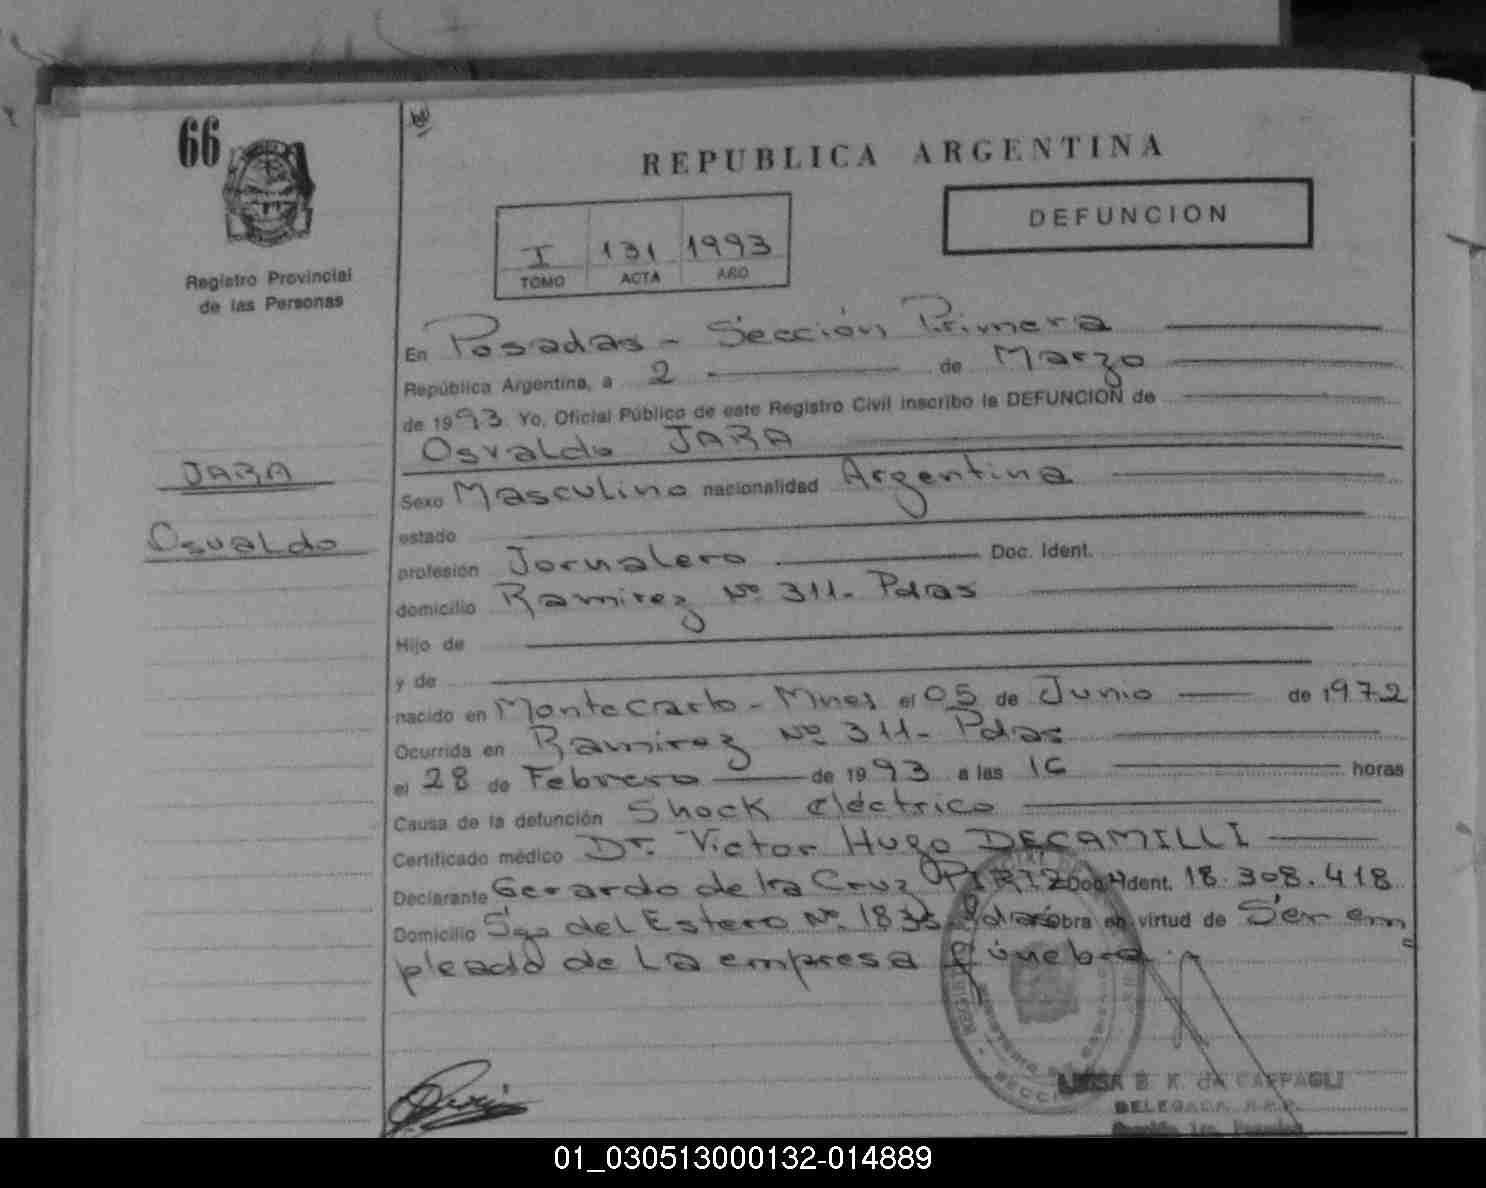 66
Registro Provincial
de las Personas
REPUBLICA ARGENTINA
DEFUNCION
I 131 1993
TOMO ACTA AÑO
En Posadas - Sección Primera
República Argentina, a 2 de Marzo
de 1993 Yo, Oficial Público de este Registro Civil inscribo la DEFUNCION de
Osvaldo JARA
JARA
Osvaldo
Sexo Masculino nacionalidad Argentina
estado
profesión Jornalero Doc. Ident.
domicilio Ramirez Nº 311- Pdas
Hijo de
y de
nacido en Montecarlo - Mnes el 05 de Junio de 1972
Ocurrida en Ramirez Nº 311- Pdas
el 28 de Febrero de 1993 a las 16 horas
Causa de la defunción Shock eléctrico
Certificado médico Dr. Victor Hugo DECAMILLI
Declarante Gerardo de la Cruz Doc. Ident. 18.308.418
Domicilio Sgo del Estero Nº 1835 Pdas obra en virtud de Ser em
pleado de la empresa fúnebre
LUISA B. K. de CAPPAGLI
DELEGADA R.P.P.
01_030513000132-014889